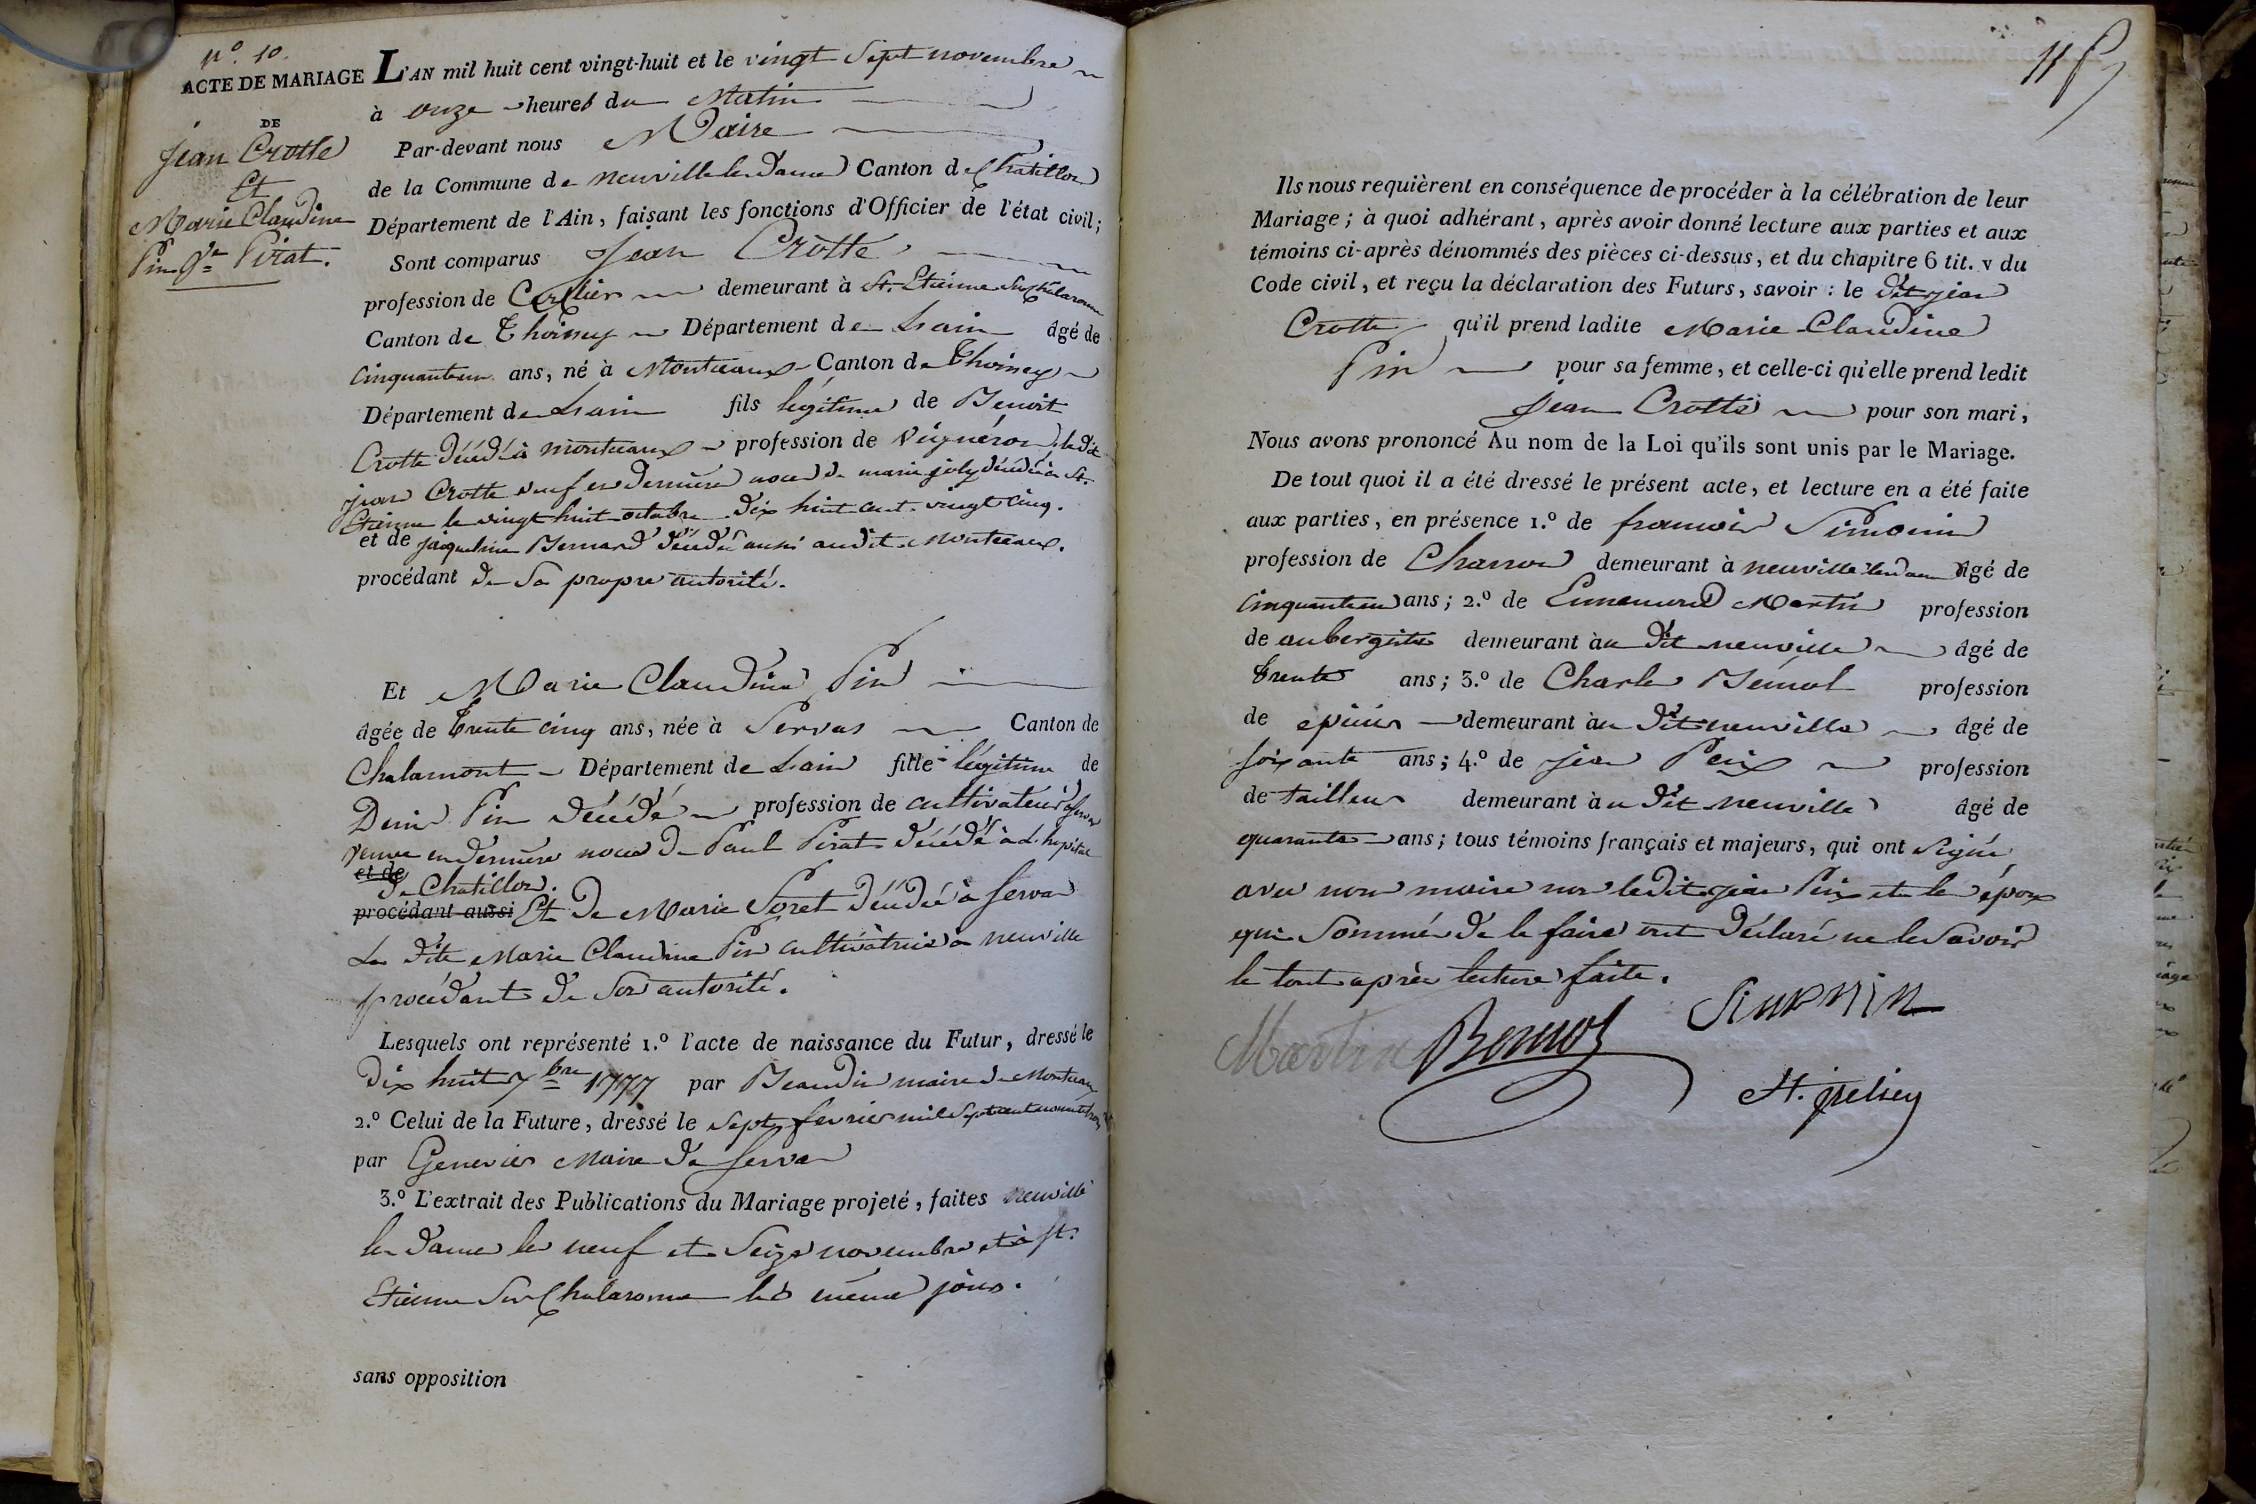 N.º 10.
ACTE DE MARIAGE
DE
Jean Crotte
Et
Marie Claudine
Pin Vᵉ Pirat.
L'AN mil huit cent vingt-huit et le vingt Sept novembre
à onze heures du Matin
Par-devant nous Maire
de la Commune de neuville les dames Canton de Chatillon
Département de l'Ain, faisant les fonctions d'Officier de l'état civil;
Sont comparus Jean Crotte
profession de demeurant à St. Etienne Sur Chalaronne
Canton de Thoissey Département de Lain âgé de
cinquanteun ans, né à Montceaux Canton de Thoissey
Département de Lain fils légitime de Benoit
Crotte décédé à montceaux profession de Vigneron, le dit
jean Crotte veuf en dernières noces de marie joly décédée à St.
Etienne le vingt huit octobre dix huit cent vingt cinq.
et de jaqueline Bernard décédée aussi audit Montceaux.
procédant de Sa propre autorité.
Et Marie Claudine Pin
âgée de trente cinq ans, née à Servas Canton de
Chalamont Département de Lain fille légitime de
Denis Pin décédé profession de cultivateur à Servas
veuve en dernières noces de Paul Pirat décédé à L'hopital
et de
de Chatillon.
procédant aussi Et de Marie Poret décédée à Servas
La dite Marie Claudine Pin cultivatrice à neuville
procédant de Son autorité.
Lesquels ont représenté 1.º l'acte de naissance du Futur, dressé le
dix huit 7bre 1777 par Beaudin maire de Montceaux
2.º Celui de la Future, dressé le sept fevrier mil Sept cent nonante trois
par Genevier Maire de Servas
3.º L'extrait des Publications du Mariage projeté, faites neuville
les dames les neuf et Seize novembre et à St.
Etienne Sur Chalaronne les même jours.
sans opposition
Ils nous requièrent en conséquence de procéder à la célébration de leur
Mariage; à quoi adhérant, après avoir donné lecture aux parties et aux
témoins ci-après dénommés des pièces ci-dessus, et du chapitre 6 tit. v du
Code civil, et reçu la déclaration des Futurs, savoir: le dit jean
Crotte qu'il prend ladite Marie Claudine
Pin pour sa femme, et celle-ci qu'elle prend ledit
Jean Crotte pour son mari,
Nous avons prononcé Au nom de la Loi qu'ils sont unis par le Mariage.
De tout quoi il a été dressé le présent acte, et lecture en a été faite
aux parties, en présence 1.º de francois Simonin
profession de Charron demeurant à neuville les dames âgé de
cinquanteun ans; 2.º de Ennemond Martin profession
de aubergiste demeurant à au dit neuville âgé de
trente ans; 3.º de Charle Bernol profession
de epicier demeurant à au dit neuville âgé de
soixante ans; 4.º de jean Peix profession
de tailleur demeurant à au dit neuville âgé de
quarante ans; tous témoins français et majeurs, qui ont Signé
avec nous maire non ledit jean Peix et les époux
qui Sommés de le faire ont déclaré ne le Savoir
le tout après lecture faite.
Martin Bernol Simonin